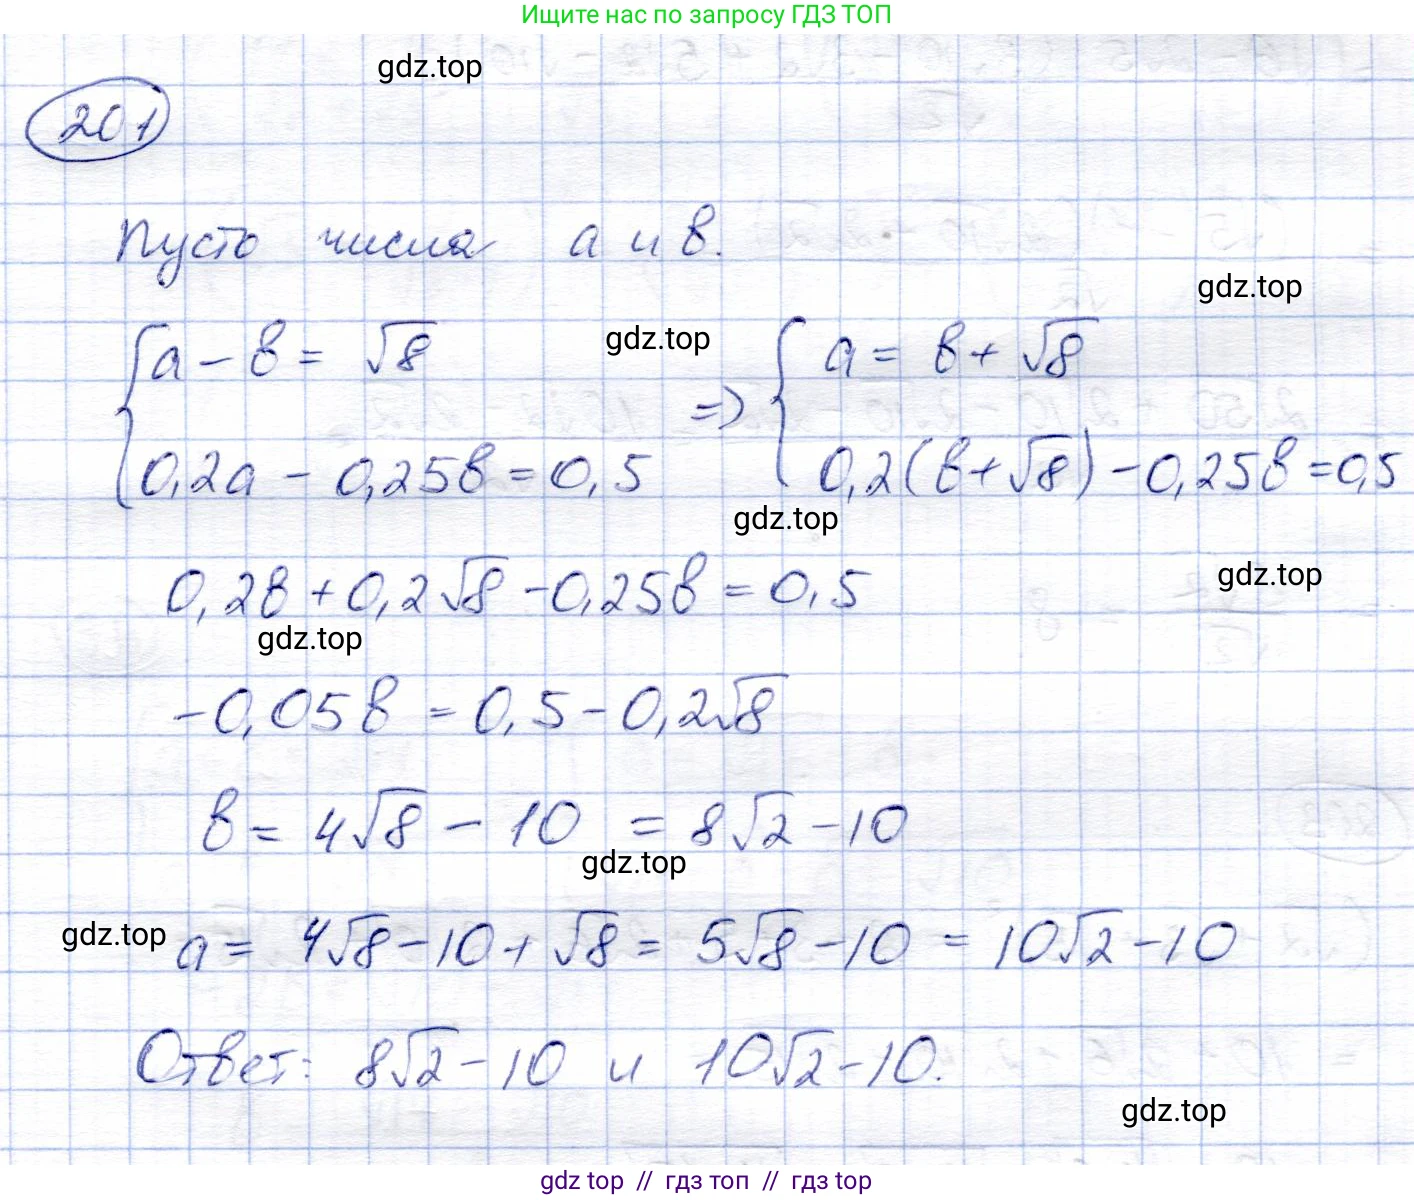 Ищите нас по запросу ГДЗ ТОП
gdz.top
201
Пусть числа a и b.
gdz.top
{ a - b = √8 gdz.top => { a = b + √8
0,2a - 0,25b = 0,5 0,2(b + √8) - 0,25b = 0,5
gdz.top
0,2b + 0,2√8 - 0,25b = 0,5 gdz.top
gdz.top
-0,05b = 0,5 - 0,2√8
b = 4√8 - 10 = 8√2 - 10
gdz.top
gdz.top a = 4√8 - 10 + √8 = 5√8 - 10 = 10√2 - 10
Ответ: 8√2 - 10 и 10√2 - 10.
gdz.top
gdz top // гдз топ // гдз top